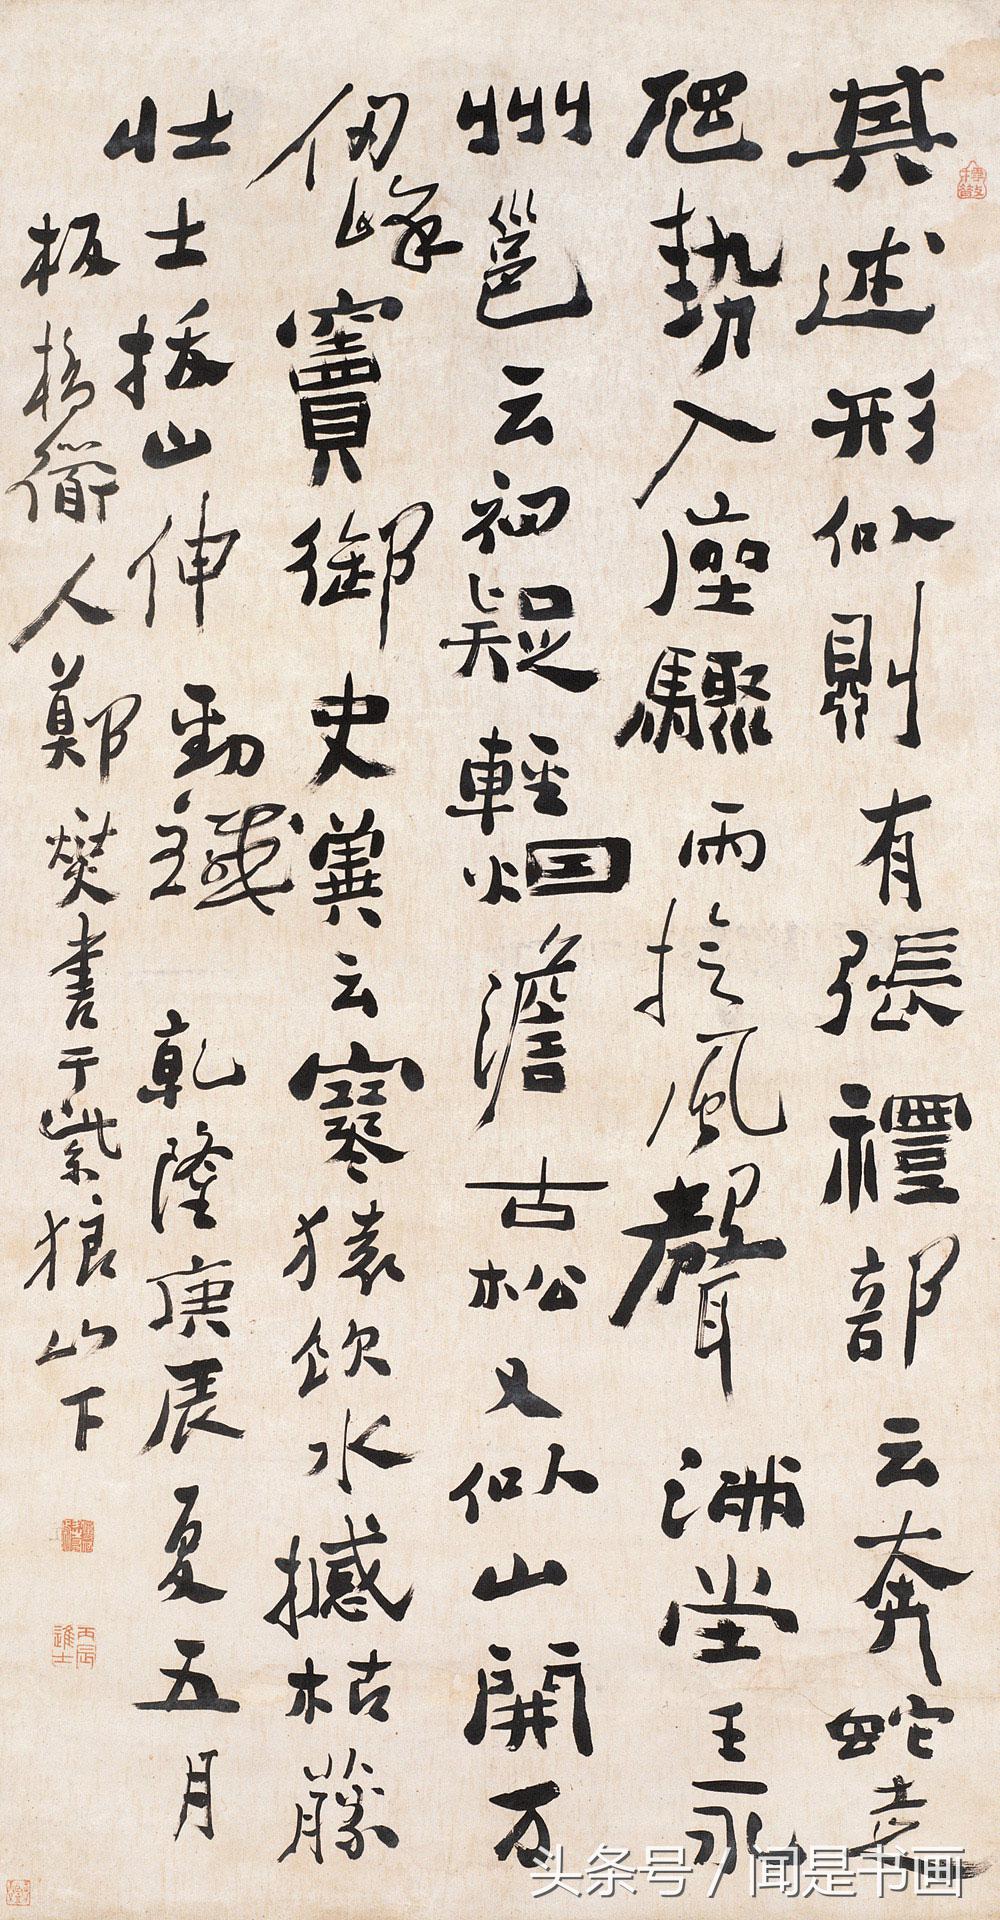 其述形似則有張禮部云奔蛇走
虺勢入座驟雨旋風聲滿堂王永
州邕云初疑輕烟澹古松又似山開万
仞峰竇御史兾云寒猿飲水撼枯藤
壯士拔山伸勁鐵 乾隆庚辰夏五月
板橋衜人鄭燮書于紫狼山下
丙辰進士
头条号 / 闻是书画